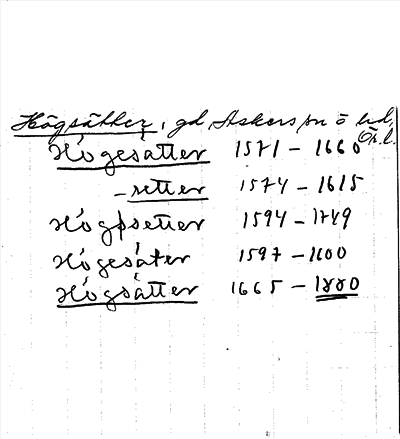 Högsätter, gd, Askers sn ö hd, Ör. l.
Högesätter 1571 – 1660
– setter 1574 – 1615
Högsetter 1594 – 1749
Högesäter 1597 – 1600
Högsätter 1665 – 1880